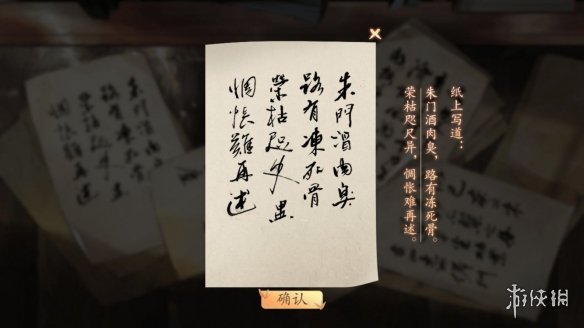 朱門酒肉臭
路有凍死骨
榮枯咫尺異
惆悵難再述
纸上写道：
朱门酒肉臭，路有冻死骨。
荣枯咫尺异，惆怅难再述。
确认
游侠网